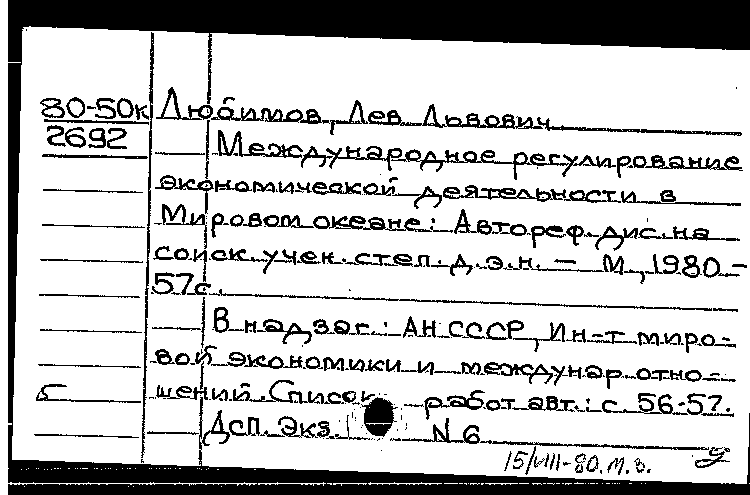 80-50к Любимов, Лев Львович
2692 Международное регулирование
экономической деятельности в
Мировом океане: Автореф. дис. на
соиск. учен. степ. д.э.н. — М., 1980.-
57с.
В надзаг.: АН СССР, Ин-т миро-
вой экономики и междунар. отно-
б шений. Список работ авт.: с. 56-57.
Дсп. Экз. N 6
15/VIII-80. М.В.